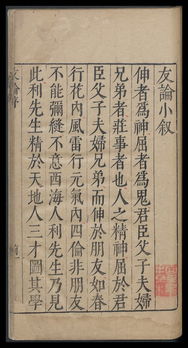 友論小叙
伸者爲神屈者爲鬼君臣父子夫婦
兄弟者莊事者也人之精神屈於君
臣父子夫婦兄弟而伸於朋友如春
行花内風雷行元氣内四倫非朋友
不能彌縫不意西海人利先生乃見
此利先生精於天地人三才圖其學